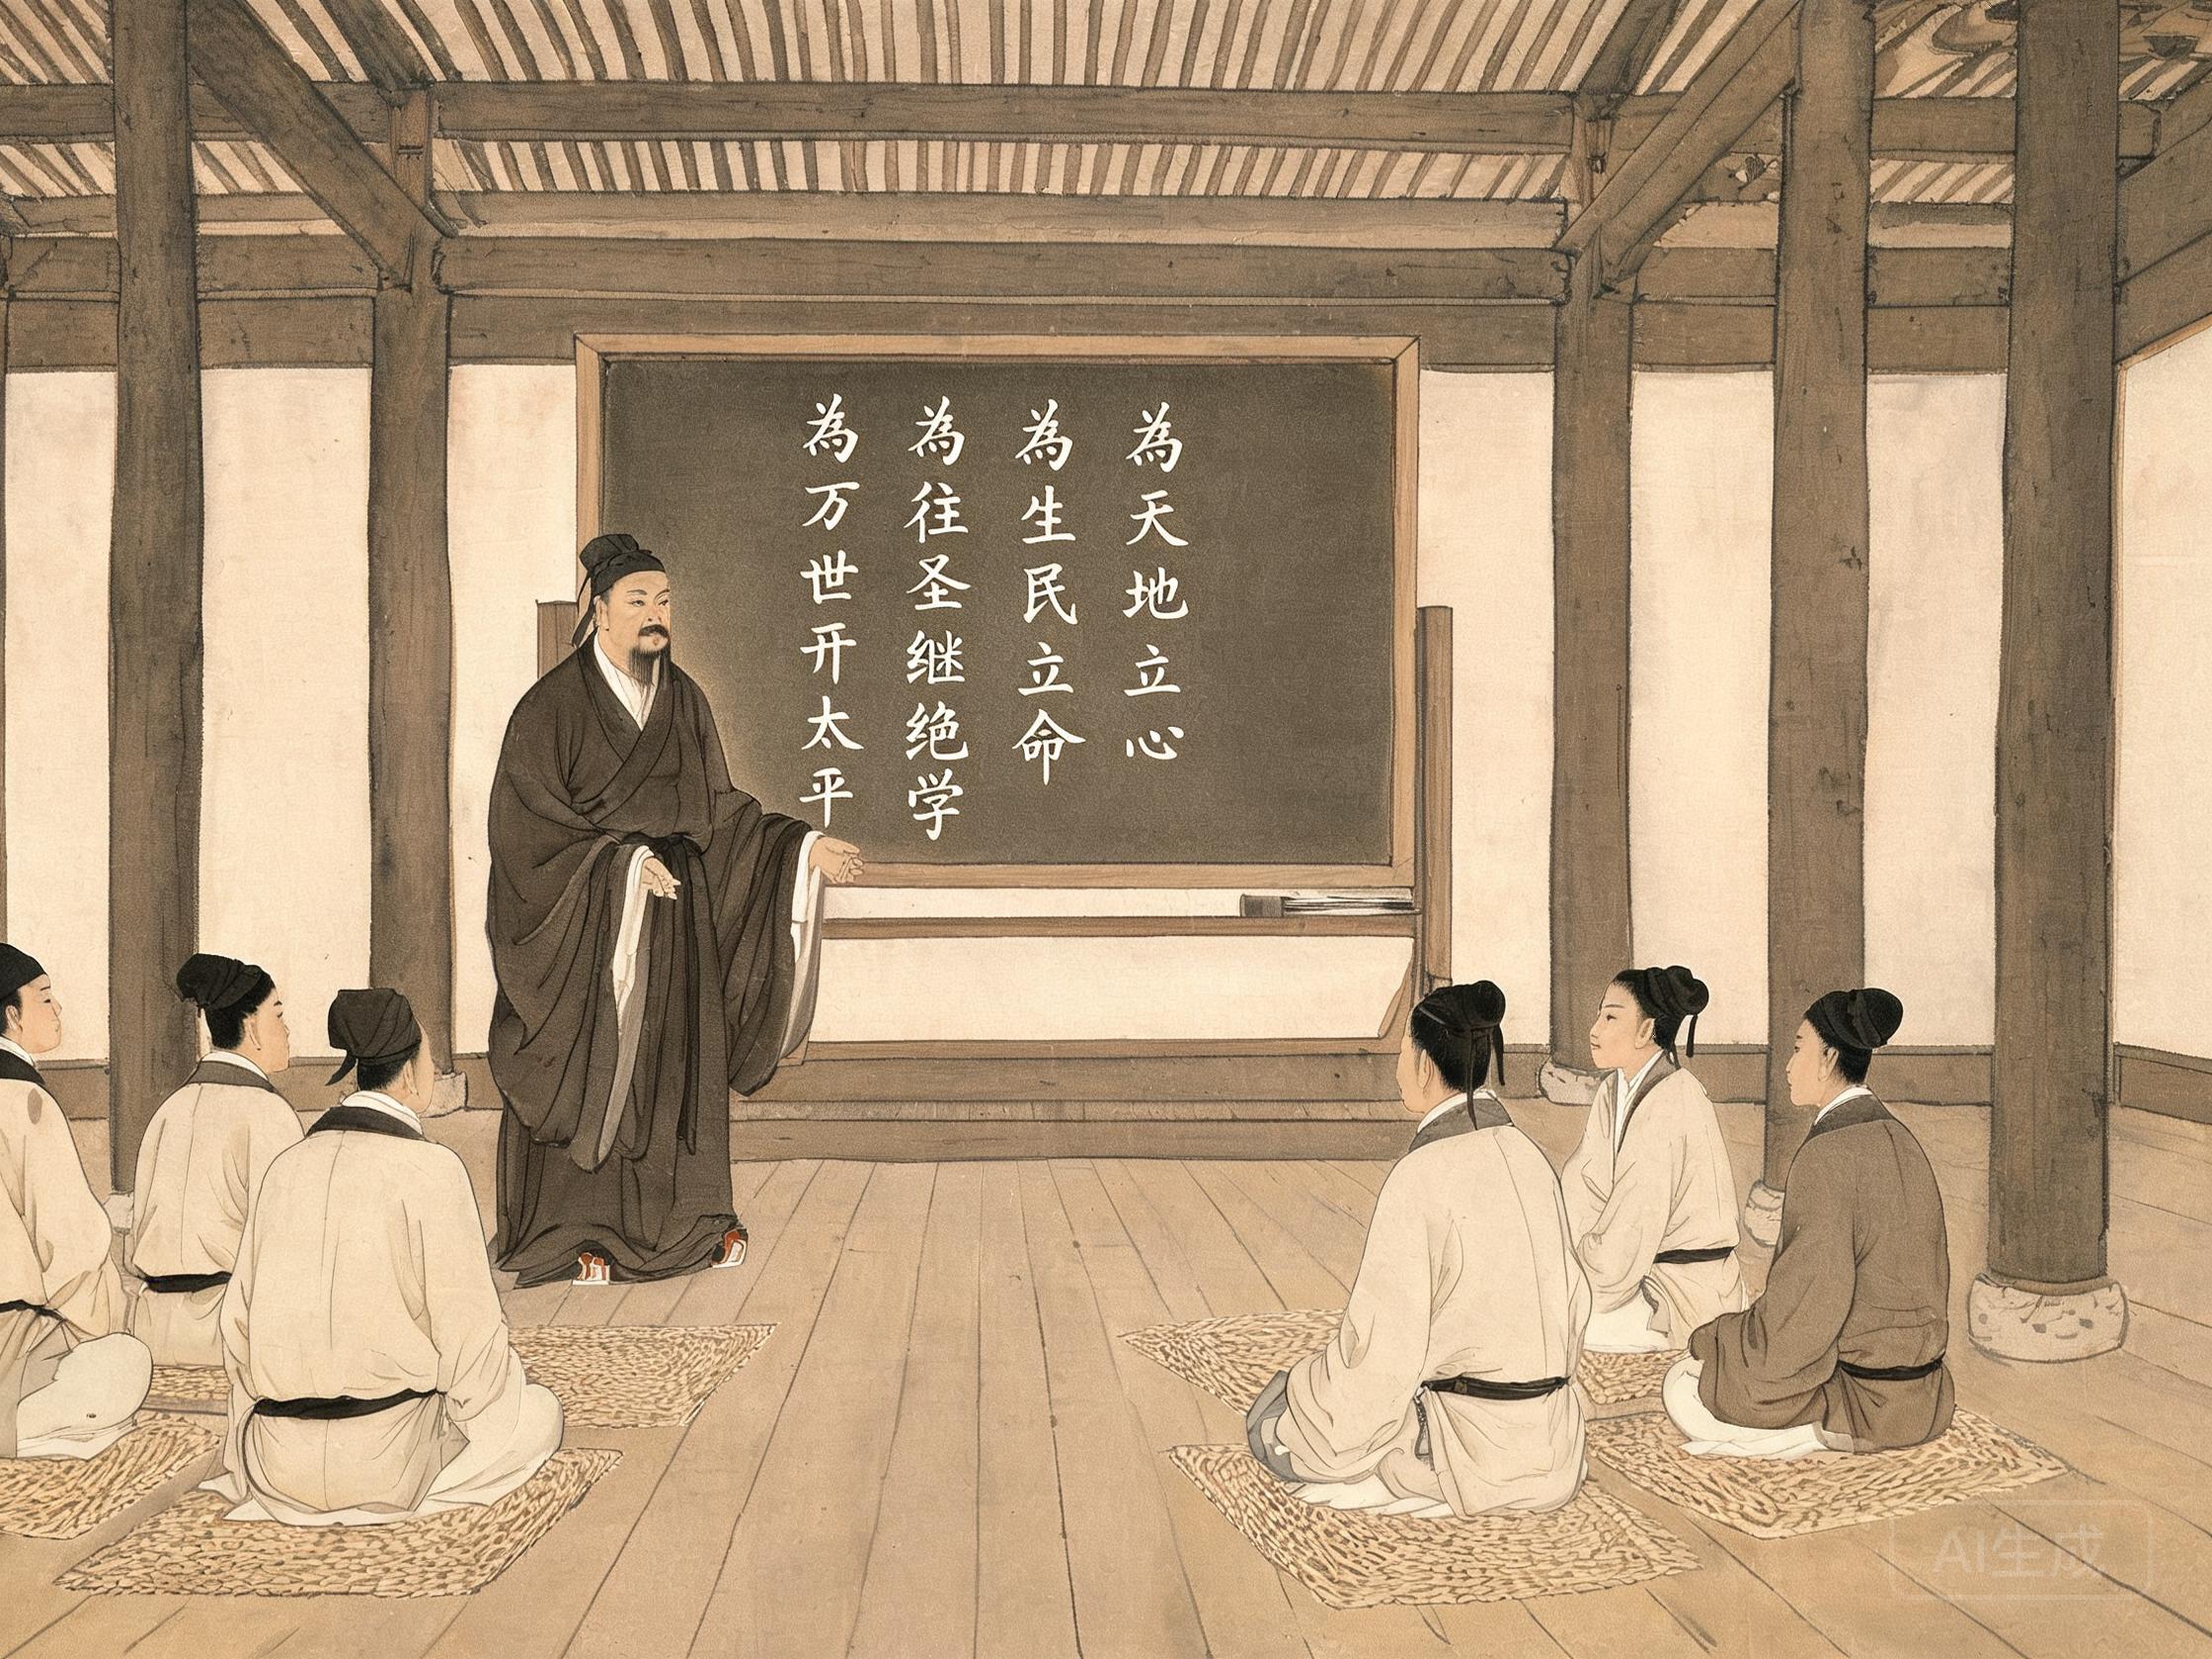 為天地立心
為生民立命
為往圣继绝学
為万世开太平
AI生成